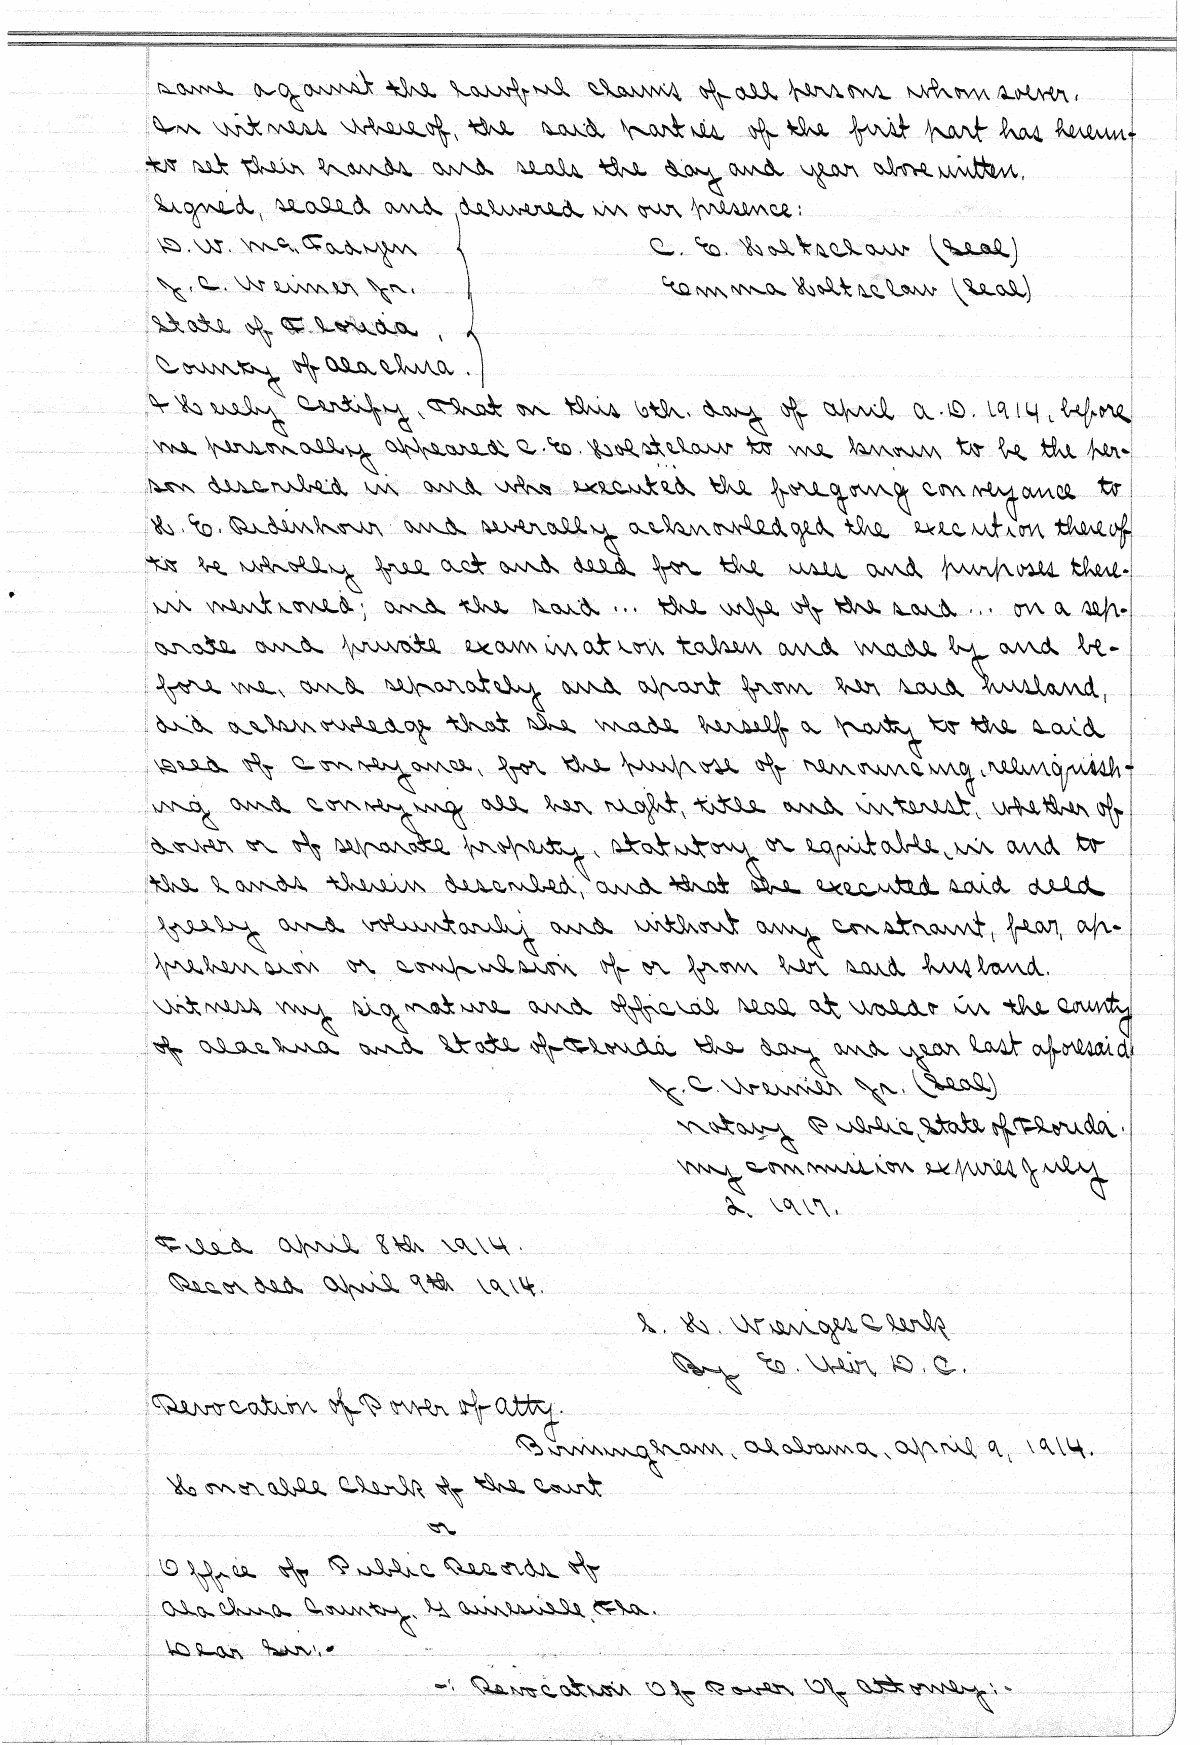 same against the lawful claims of all persons whomsoever.
In witness whereof, the said parties of the first part has hereun-
to set their hands and seals the day and year above written.
Signed, sealed and delivered in our presence:
D. W. McFadyen
C. E. Holtsclaw (Seal)
J. C. Weimer Jr.
Emma Holtsclaw (Seal)
State of Florida,
County of Alachua.
I Hereby Certify, That on this 6th. day of April A.D. 1914, before
me personally appeared C. E. Holstclaw to me known to be the per-
son described in and who executed the foregoing conveyance to
H. E. Ridenhour and severally acknowledged the execution thereof
to be wholly free act and deed for the uses and purposes there-
in mentioned; and the said ... the wife of the said ... on a sep-
arate and private examination taken and made by and be-
fore me, and separately and apart from her said husland,
did acknowledge that she made herself a party to the said
Deed of Conveyance, for the purpose of renouncing, relinquish-
ing and conveying all her right, title and interest, whether of
dower or of separate property, statutory or equitable, in and to
the lands therein described, and that she executed said deed
freely and voluntarily and without any constraint, fear, ap-
prehension or compulsion of or from her said husland.
Witness my signature and official seal at Waldo in the County
of Alachua and State of Florida the day and year last aforesaid
J. C. Weimer Jr. (Seal)
Notary Public, State of Florida.
My commission expires July
2. 1917.
Filed April 8th 1914.
Recorded April 9th 1914.
S. H. Wienges Clerk
By E. Weir D. C.
Revocation of Power of Atty.
Birmingham, Alabama, April 9, 1914.
Honorable Clerk of the Court
or
Office of Public Records of
Alachua County, Gainesville, Fla.
Dear Sir:-
-: Revocation Of Power Of Attorney:-